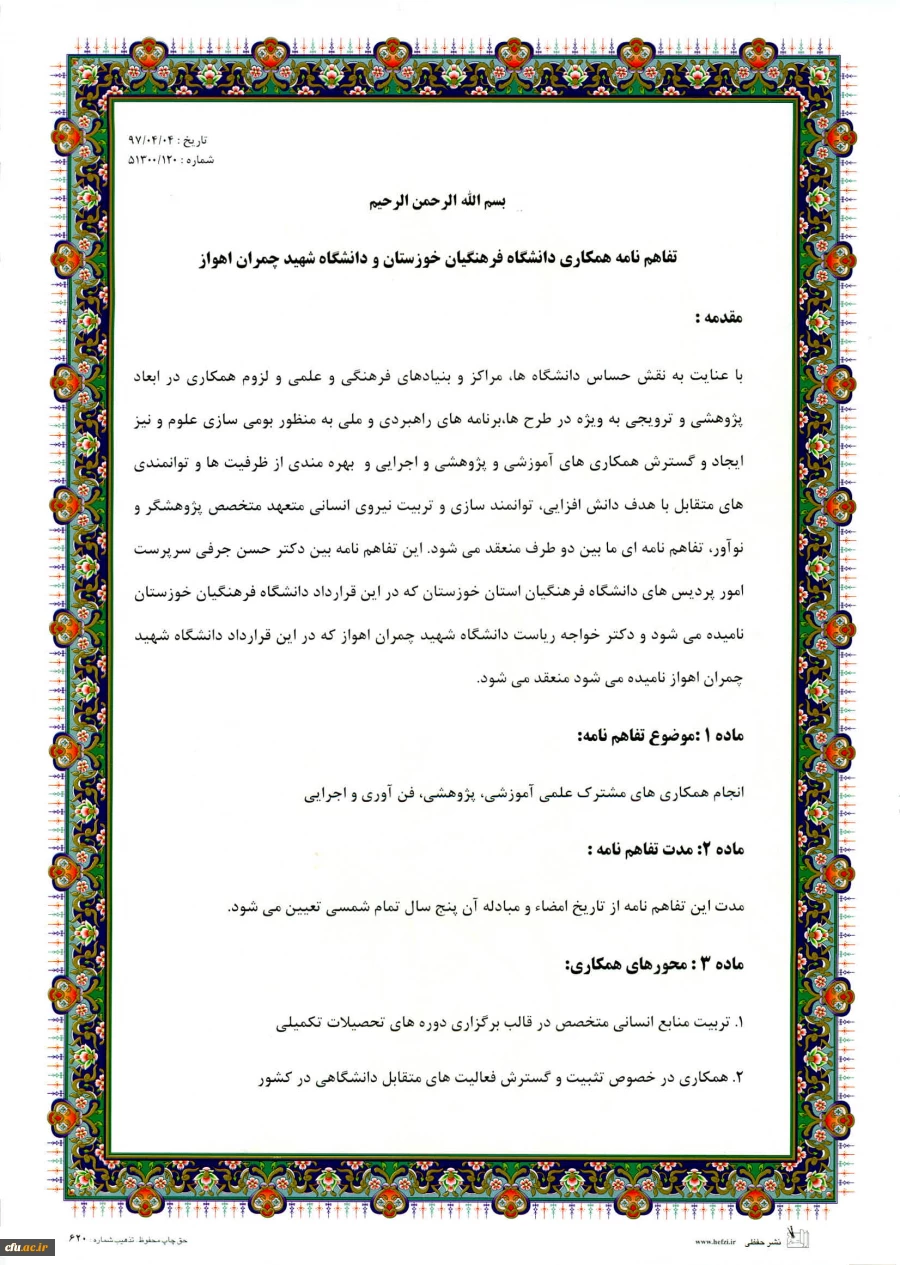 تاریخ : ۹۷/۰۴/۰۴
شماره : ۵۱۳۰۰/۱۲۰
بسم الله الرحمن الرحیم
تفاهم نامه همکاری دانشگاه فرهنگیان خوزستان و دانشگاه شهید چمران اهواز
مقدمه :
با عنایت به نقش حساس دانشگاه ها، مراکز و بنیادهای فرهنگی و علمی و لزوم همکاری در ابعاد
پژوهشی و ترویجی به ویژه در طرح ها،برنامه های راهبردی و ملی به منظور بومی سازی علوم و نیز
ایجاد و گسترش همکاری های آموزشی و پژوهشی و اجرایی و بهره مندی از ظرفیت ها و توانمندی
های متقابل با هدف دانش افزایی، توانمند سازی و تربیت نیروی انسانی متعهد متخصص پژوهشگر و
نوآور، تفاهم نامه ای ما بین دو طرف منعقد می شود. این تفاهم نامه بین دکتر حسن جرفی سرپرست
امور پردیس های دانشگاه فرهنگیان استان خوزستان که در این قرارداد دانشگاه فرهنگیان خوزستان
نامیده می شود و دکتر خواجه ریاست دانشگاه شهید چمران اهواز که در این قرارداد دانشگاه شهید
چمران اهواز نامیده می شود منعقد می شود.
ماده ۱ :موضوع تفاهم نامه:
انجام همکاری های مشترک علمی آموزشی، پژوهشی، فن آوری و اجرایی
ماده ۲: مدت تفاهم نامه :
مدت این تفاهم نامه از تاریخ امضاء و مبادله آن پنج سال تمام شمسی تعیین می شود.
ماده ۳ : محورهای همکاری:
۱. تربیت منابع انسانی متخصص در قالب برگزاری دوره های تحصیلات تکمیلی
۲. همکاری در خصوص تثبیت و گسترش فعالیت های متقابل دانشگاهی در کشور
نشر حفظی www.hefzi.ir
حق چاپ محفوظ- تذهیب شماره : ۶۲۰
cfu.ac.ir